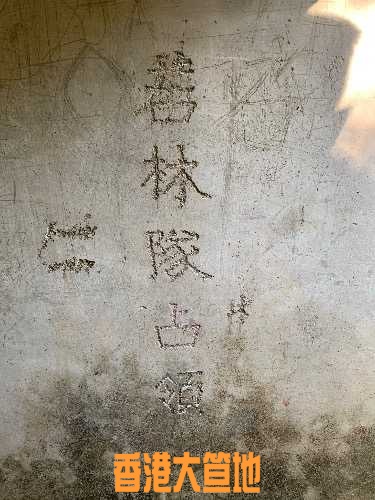 若林隊占領
仁
香港大笪地